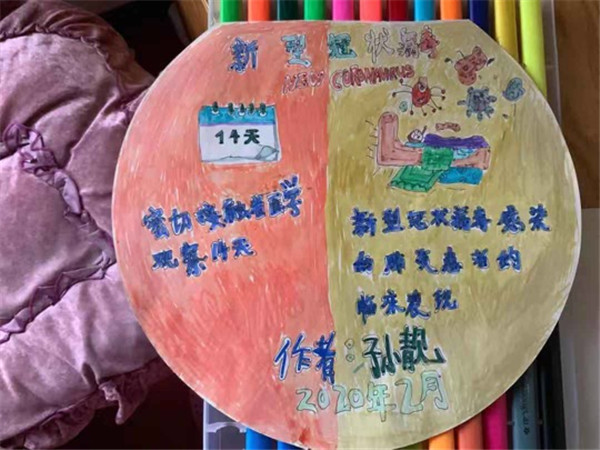 新型冠状病毒
NEW CORONAVIRUS
14天
密切接触者医学
观察14天
新型冠状病毒感染
的肺炎患者的
临床表现
作者:孙靓
2020年2月